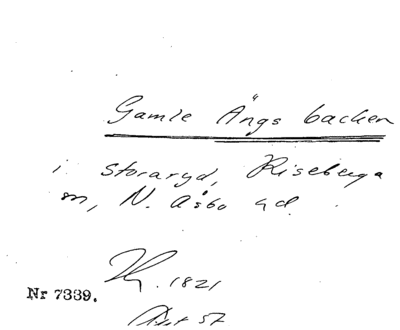 Gamle Ängs backen
i Storaryd, Riseberga
sn, N. Åsbo hd.
1821
Nr 7339.
57